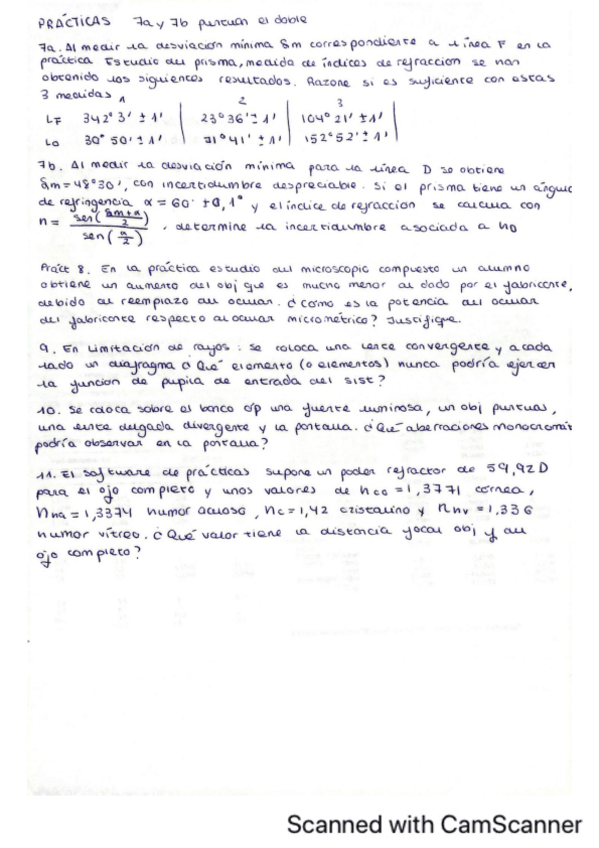 PRÁCTICAS 7a y 7b puntúan el doble
7a. Al medir la desviación mínima δm correspondiente a línea F en la
práctica Estudio del prisma, medida de índices de refracción se han
obtenido los siguientes resultados. Razone si es suficiente con estas
3 medidas
1 2 3
LF 342° 3' ± 1' 23° 36' ± 1' 104° 21' ± 1'
Lo 30° 50' ± 1' 71° 41' ± 1' 152° 52' ± 1'
7b. Al medir la desviación mínima para la línea D se obtiene
δm = 48° 30', con incertidumbre despreciable. Si el prisma tiene un ángulo
de refringencia α = 60° ± 0,1° y el índice de refracción se calcula con
n = sen((δm+α)/2) / sen(α/2) , determine la incertidumbre asociada a nD
Práct 8. En la práctica estudio del microscopio compuesto un alumno
obtiene un aumento del obj que es mucho menor al dado por el fabricante,
debido al reemplazo del ocular. ¿Cómo es la potencia del ocular
del fabricante respecto al ocular micrométrico? Justifique.
9. En Limitación de rayos: se coloca una lente convergente y a cada
lado un diafragma ¿Qué elemento (o elementos) nunca podría ejercer
la función de pupila de entrada del sist?
10. Se coloca sobre el banco óp una fuente luminosa, un obj puntual,
una lente delgada divergente y la pantalla. ¿Qué aberraciones monocromát
podría observar en la pantalla?
11. El software de prácticas supone un poder refractor de 59,92 D
para el ojo completo y unos valores de nco = 1,3771 córnea,
nha = 1,3374 humor acuoso, nc = 1,42 cristalino y nhv = 1,336
humor vítreo. ¿Qué valor tiene la distancia focal obj y del
ojo completo?
Scanned with CamScanner